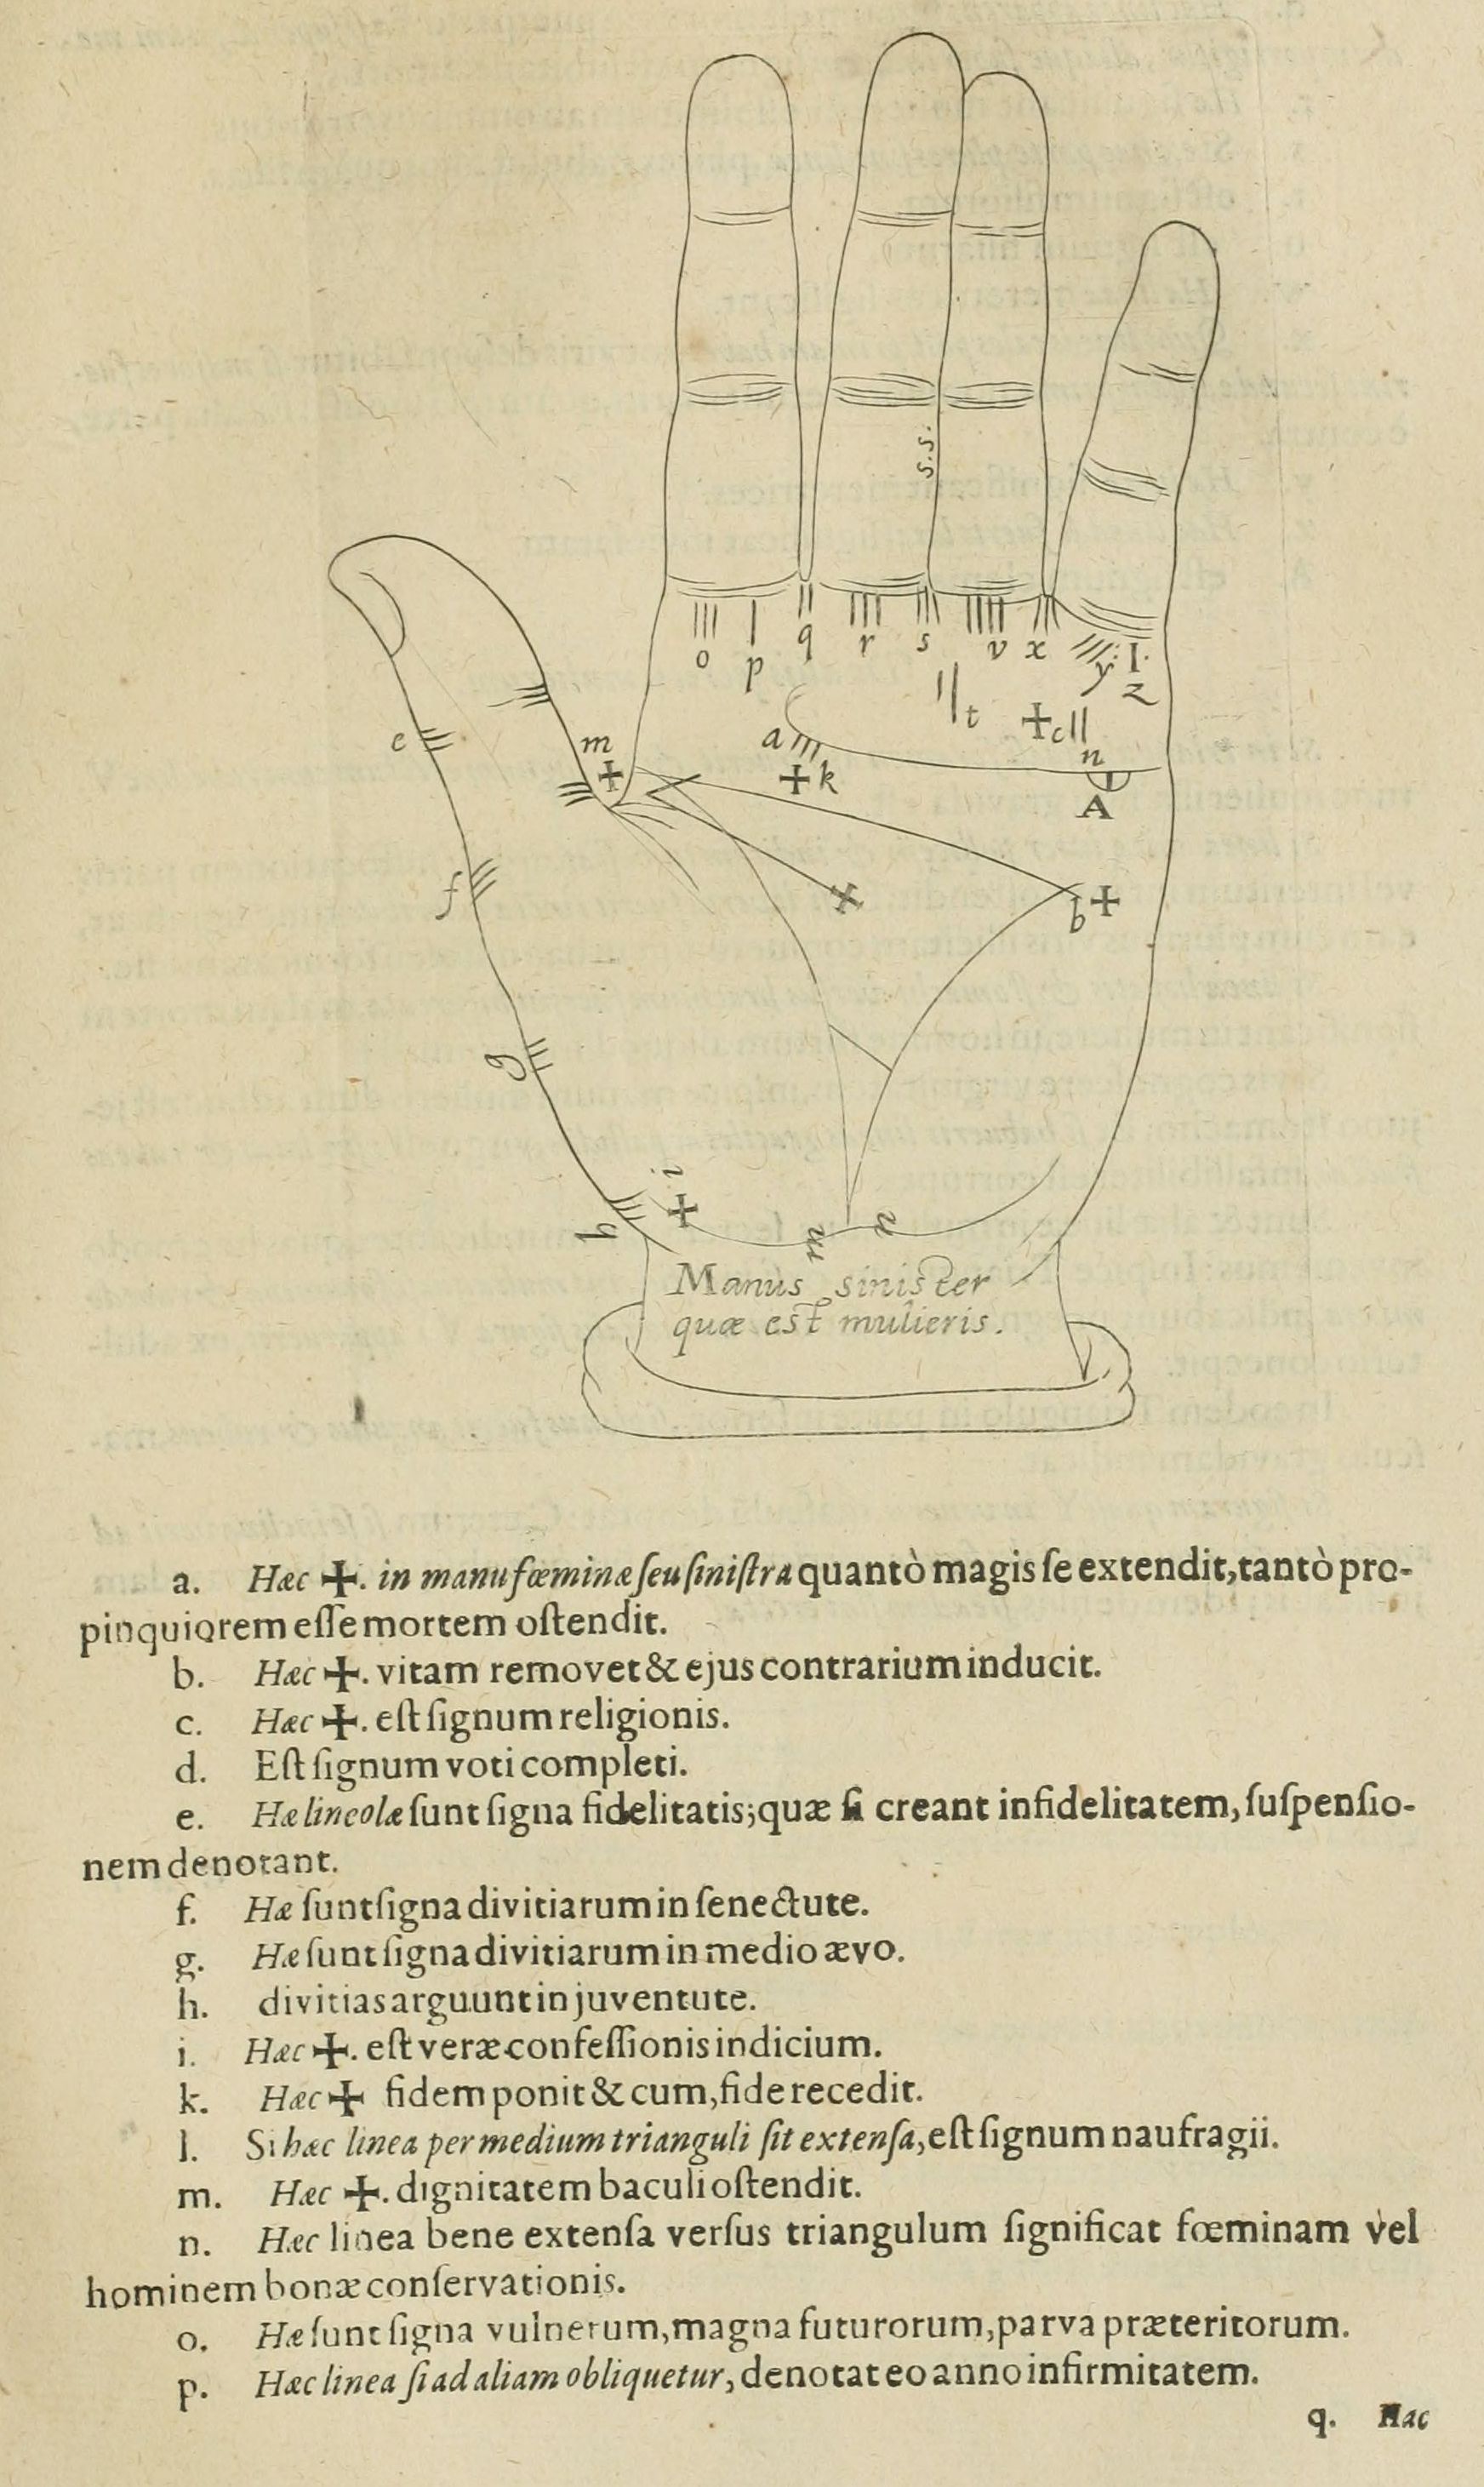 s.s.
o p q r s v x y z
e m a t c n
k A
f b
g
i
h m n
Manus sinister
quæ est mulieris.
a. Hæc ✠. in manu fœminæ ſeu ſiniſtra quantò magis ſe extendit, tantò pro-
pinquiorem eſſe mortem oſtendit.
b. Hæc ✠. vitam removet & ejus contrarium inducit.
c. Hæc ✠. eſt ſignum religionis.
d. Eſt ſignum voti completi.
e. Hæ lineolæ ſunt ſigna fidelitatis; quæ ſi creant infidelitatem, ſuſpenſio-
nem denotant.
f. Hæ ſunt ſigna divitiarum in ſenectute.
g. Hæ ſunt ſigna divitiarum in medio ævo.
h. divitias arguunt in juventute.
i. Hæc ✠. eſt veræ confeſſionis indicium.
k. Hæc ✠ fidem ponit & cum, fide recedit.
l. Si hæc linea per medium trianguli ſit extenſa, eſt ſignum naufragii.
m. Hæc ✠. dignitatem baculi oſtendit.
n. Hæc linea bene extenſa verſus triangulum ſignificat fœminam vel
hominem bonæ conſervationis.
o. Hæ ſunt ſigna vulnerum, magna futurorum, parva præteritorum.
p. Hæc linea ſi ad aliam obliquetur, denotat eo anno infirmitatem.
q. Hæc